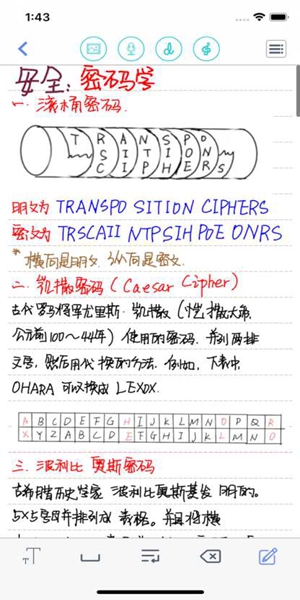 1:43
安全：密码学
一. 滚桶密码.
T R A N S P O
S I T I O N
C I P H E R S
明文为 TRANSPO SITION CIPHERS
密文为 TRSCAII NTPSIH POE ONRS
* 横向是明文, 纵向是密文.
二. 凯撒密码 (Caesar Cipher)
古代罗马将军尤里斯·凯撒 (恺撒大帝,
公元前100～44年) 使用的密码, 并列两排
文字, 然后用代换的方法, 例如, 下表中
OHARA 可以换成 LEXOX.
A B C D E F G H I J K L M N O P Q R
X Y Z A B C D E F G H I J K L M N O
三. 波利比奥斯密码
古希腊历史学家 波利比奥斯其发明的。
5×5字母并排列成表格。并且将横